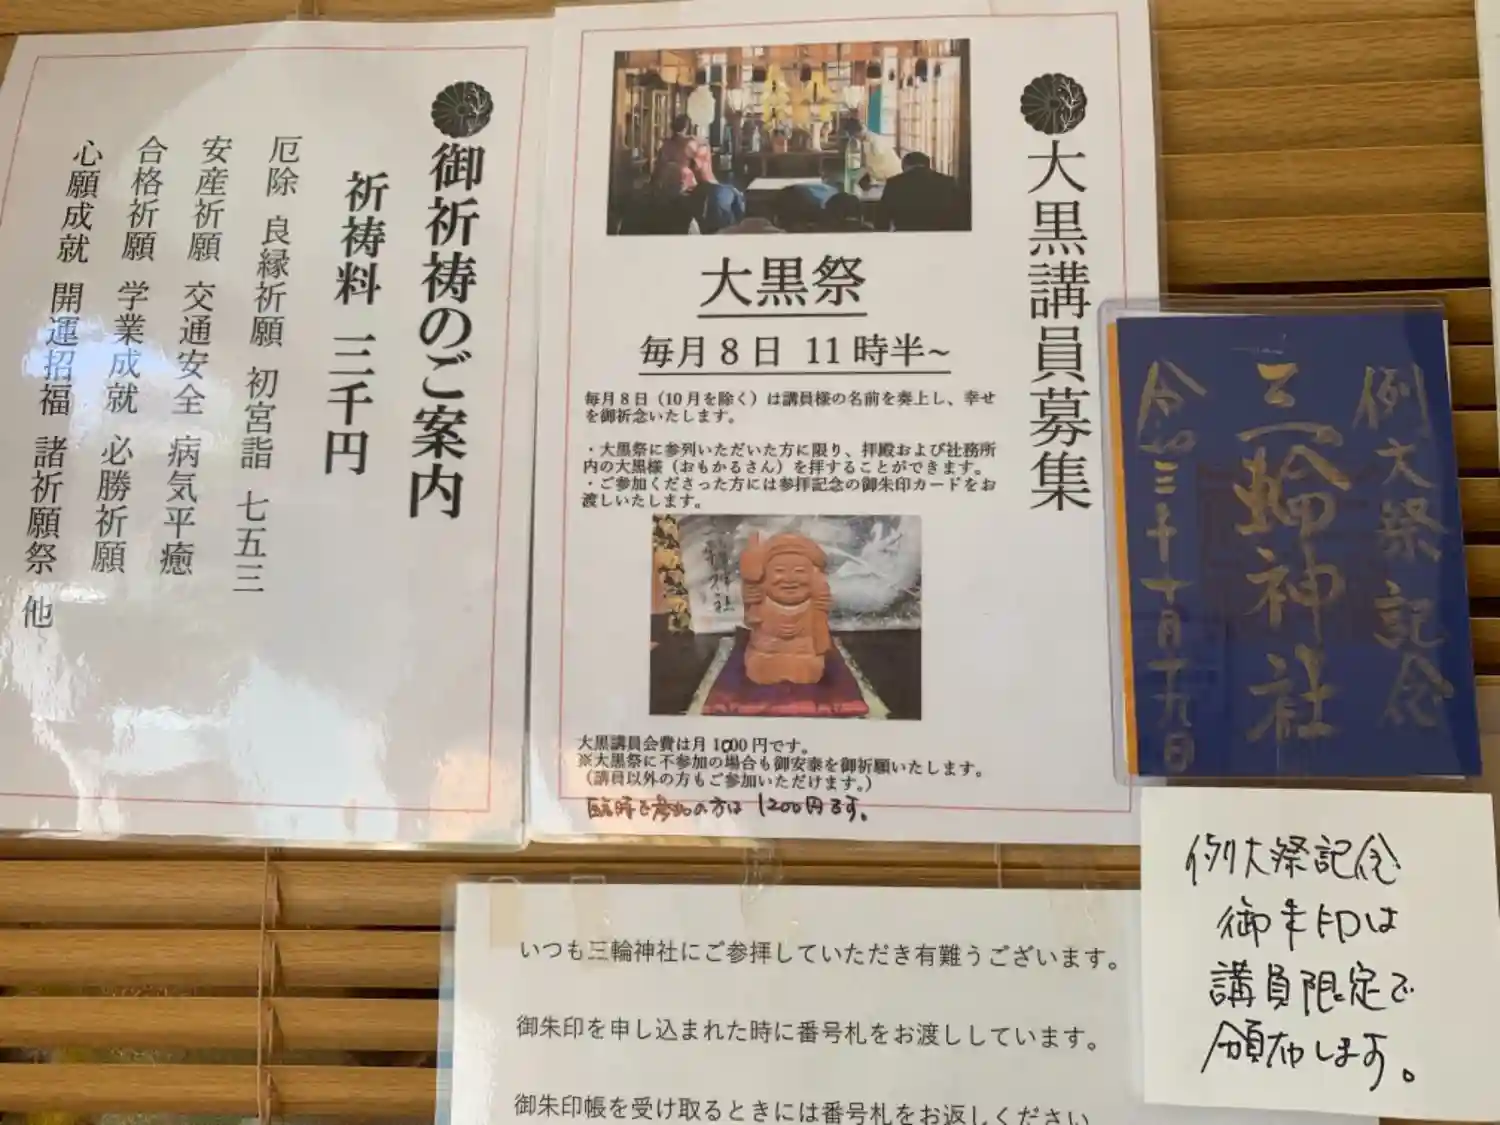 御祈祷のご案内
祈祷料 三千円
厄除 良縁祈願 初宮詣 七五三
安産祈願 交通安全 病気平癒
合格祈願 学業成就 必勝祈願
心願成就 開運招福 諸祈願祭 他
大黒講員募集
大黒祭
毎月8日 11時半~
毎月8日（10月を除く）は講員様の名前を奏上し、幸せ
を御祈念いたします。
・大黒祭に参列いただいた方に限り、拝殿および社務所
内の大黒様（おもかるさん）を拝することができます。
・ご参加くださった方には参拝記念の御朱印カードをお
渡しいたします。
大黒講員会費は月1000円です。
※大黒祭に不参加の場合も御安泰を御祈願いたします。
（講員以外の方もご参加いただけます。）
臨時で参加の方は 1200円です。
例大祭記念
三輪神社
令和三年十月十九日
例大祭記念
御朱印は
講員限定で
頒布します。
いつも三輪神社にご参拝していただき有難うございます。
御朱印を申し込まれた時に番号札をお渡ししています。
御朱印帳を受け取るときには番号札をお返しください